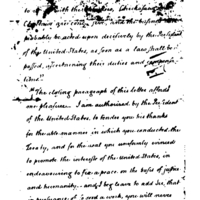 to a with the
Chickasaws
probably be acted upon decisively by the President
of the United States, as soon as a law shall be
passed, ascertaining their duties and compensa-
tions."
"The closing paragraph of this letter affords
me pleasure. I am authorized by the President
of the United States, to tender you his thanks
for the able manner in which you conducted the
Treaty, and for the zeal you uniformly evinced
to promote the interests of the United States, in
endeavouring to fix a peace on the basis of justice
and humanity. and I beg leave to add Sir, that
in a good work, you will never